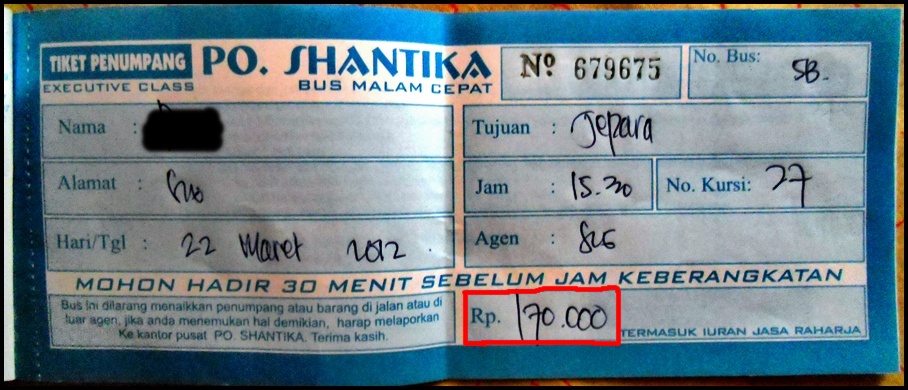 TIKET PENUMPANG PO. SHANTIKA Nº 679675 No. Bus: SB.
EXECUTIVE CLASS BUS MALAM CEPAT
Nama :
Tujuan : Jepara
Alamat :
Jam : 15.30 No. Kursi: 27
Hari/Tgl : 22 Maret 2012
Agen :
MOHON HADIR 30 MENIT SEBELUM JAM KEBERANGKATAN
Bus Ini dilarang menaikkan penumpang atau barang di jalan atau di
luar agen, jika anda menemukan hal demikian, harap melaporkan
Ke kantor pusat PO. SHANTIKA. Terima kasih.
Rp. 170.000 TERMASUK IURAN JASA RAHARJA